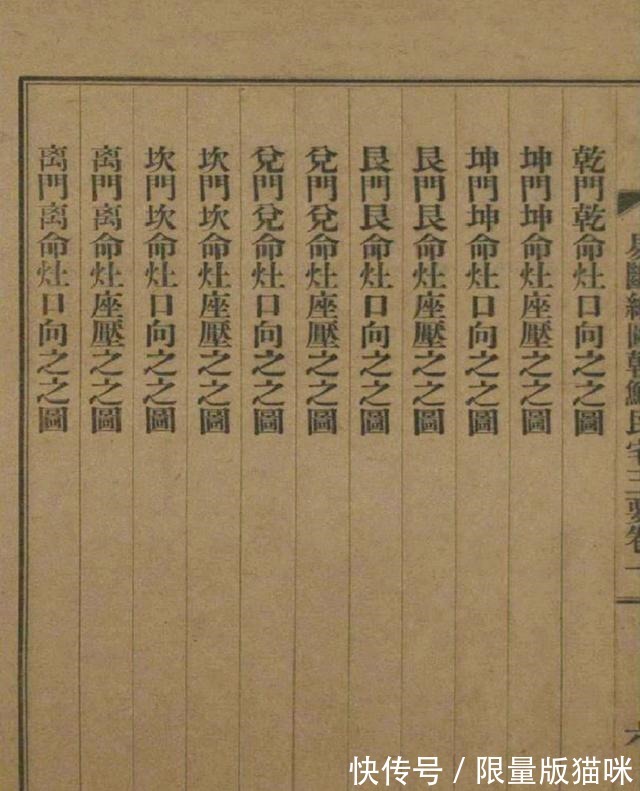 民宅三要卷一
六
乾門乾命灶口向之之圖
坤門坤命灶座壓之之圖
坤門坤命灶口向之之圖
艮門艮命灶座壓之之圖
艮門艮命灶口向之之圖
兌門兌命灶座壓之之圖
兌門兌命灶口向之之圖
坎門坎命灶座壓之之圖
坎門坎命灶口向之之圖
离門离命灶座壓之之圖
离門离命灶口向之之圖
快传号/限量版猫咪